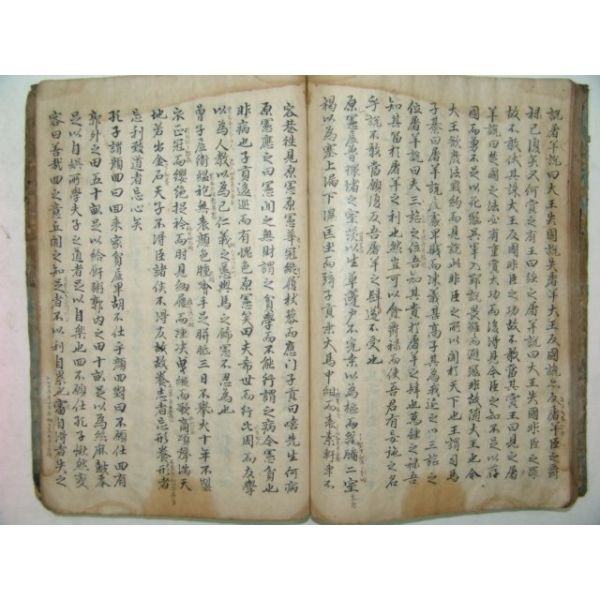 說屠羊說曰大王失國說失屠羊大王反國說亦反屠羊臣之爵
祿已復矣又何賞之有王曰强之屠羊說曰大王失國非臣之罪
故不敢伏其誅大王反國非臣之功故不敢當其賞王曰見之屠
羊說曰楚國之法必有重賞大功而後得見今臣之知不足以存
國而勇不足以死寇吳軍入郢說畏難而避寇非故隨大王也今
大王欲廢法毁約而見說此非臣之所以聞於天下也王謂司馬
子綦曰屠羊說居處卑賤而陳義甚高子其為我延之以三旌之
位屠羊說曰夫三旌之位吾知其貴於屠羊之肆也萬鍾之祿吾
知其富於屠羊之利也然豈可以食爵祿而使吾君有妄施之名
乎說不敢當願復反吾屠羊之肆遂不受也
原憲居魯環堵之室茨以生草蓬戶不完桑以為樞而甕牖二室
褐以為塞上漏下濕匡坐而弦子貢乘大馬中紺而表素軒車不
容巷往見原憲原憲華冠縰履杖藜而應門子貢曰嘻先生何病
原憲應之曰憲聞之無財謂之貧學而不能行謂之病今憲貧也
非病也子貢逡巡而有愧色原憲笑曰夫希世而行比周而友學
以為人教以為己仁義之慝輿馬之飾憲不忍為也
曾子居衛縕袍無表顔色腫噲手足胼胝三日不擧火十年不製
衣正冠而纓絶捉衿而肘見納屨而踵決曳縰而歌商頌聲滿天
地若出金石天子不得臣諸侯不得友故養志者忘形養形者
忘利致道者忘心矣
孔子謂顔回曰回來家貧居卑胡不仕乎顔回對曰不願仕回有
郭外之田五十畝足以給飦粥郭內之田十畝足以為絲麻鼓琴
足以自娛所學夫子之道者足以自樂也回不願仕孔子愀然變
容曰善哉回之意丘聞之知足者不以利自累也審自得者失之